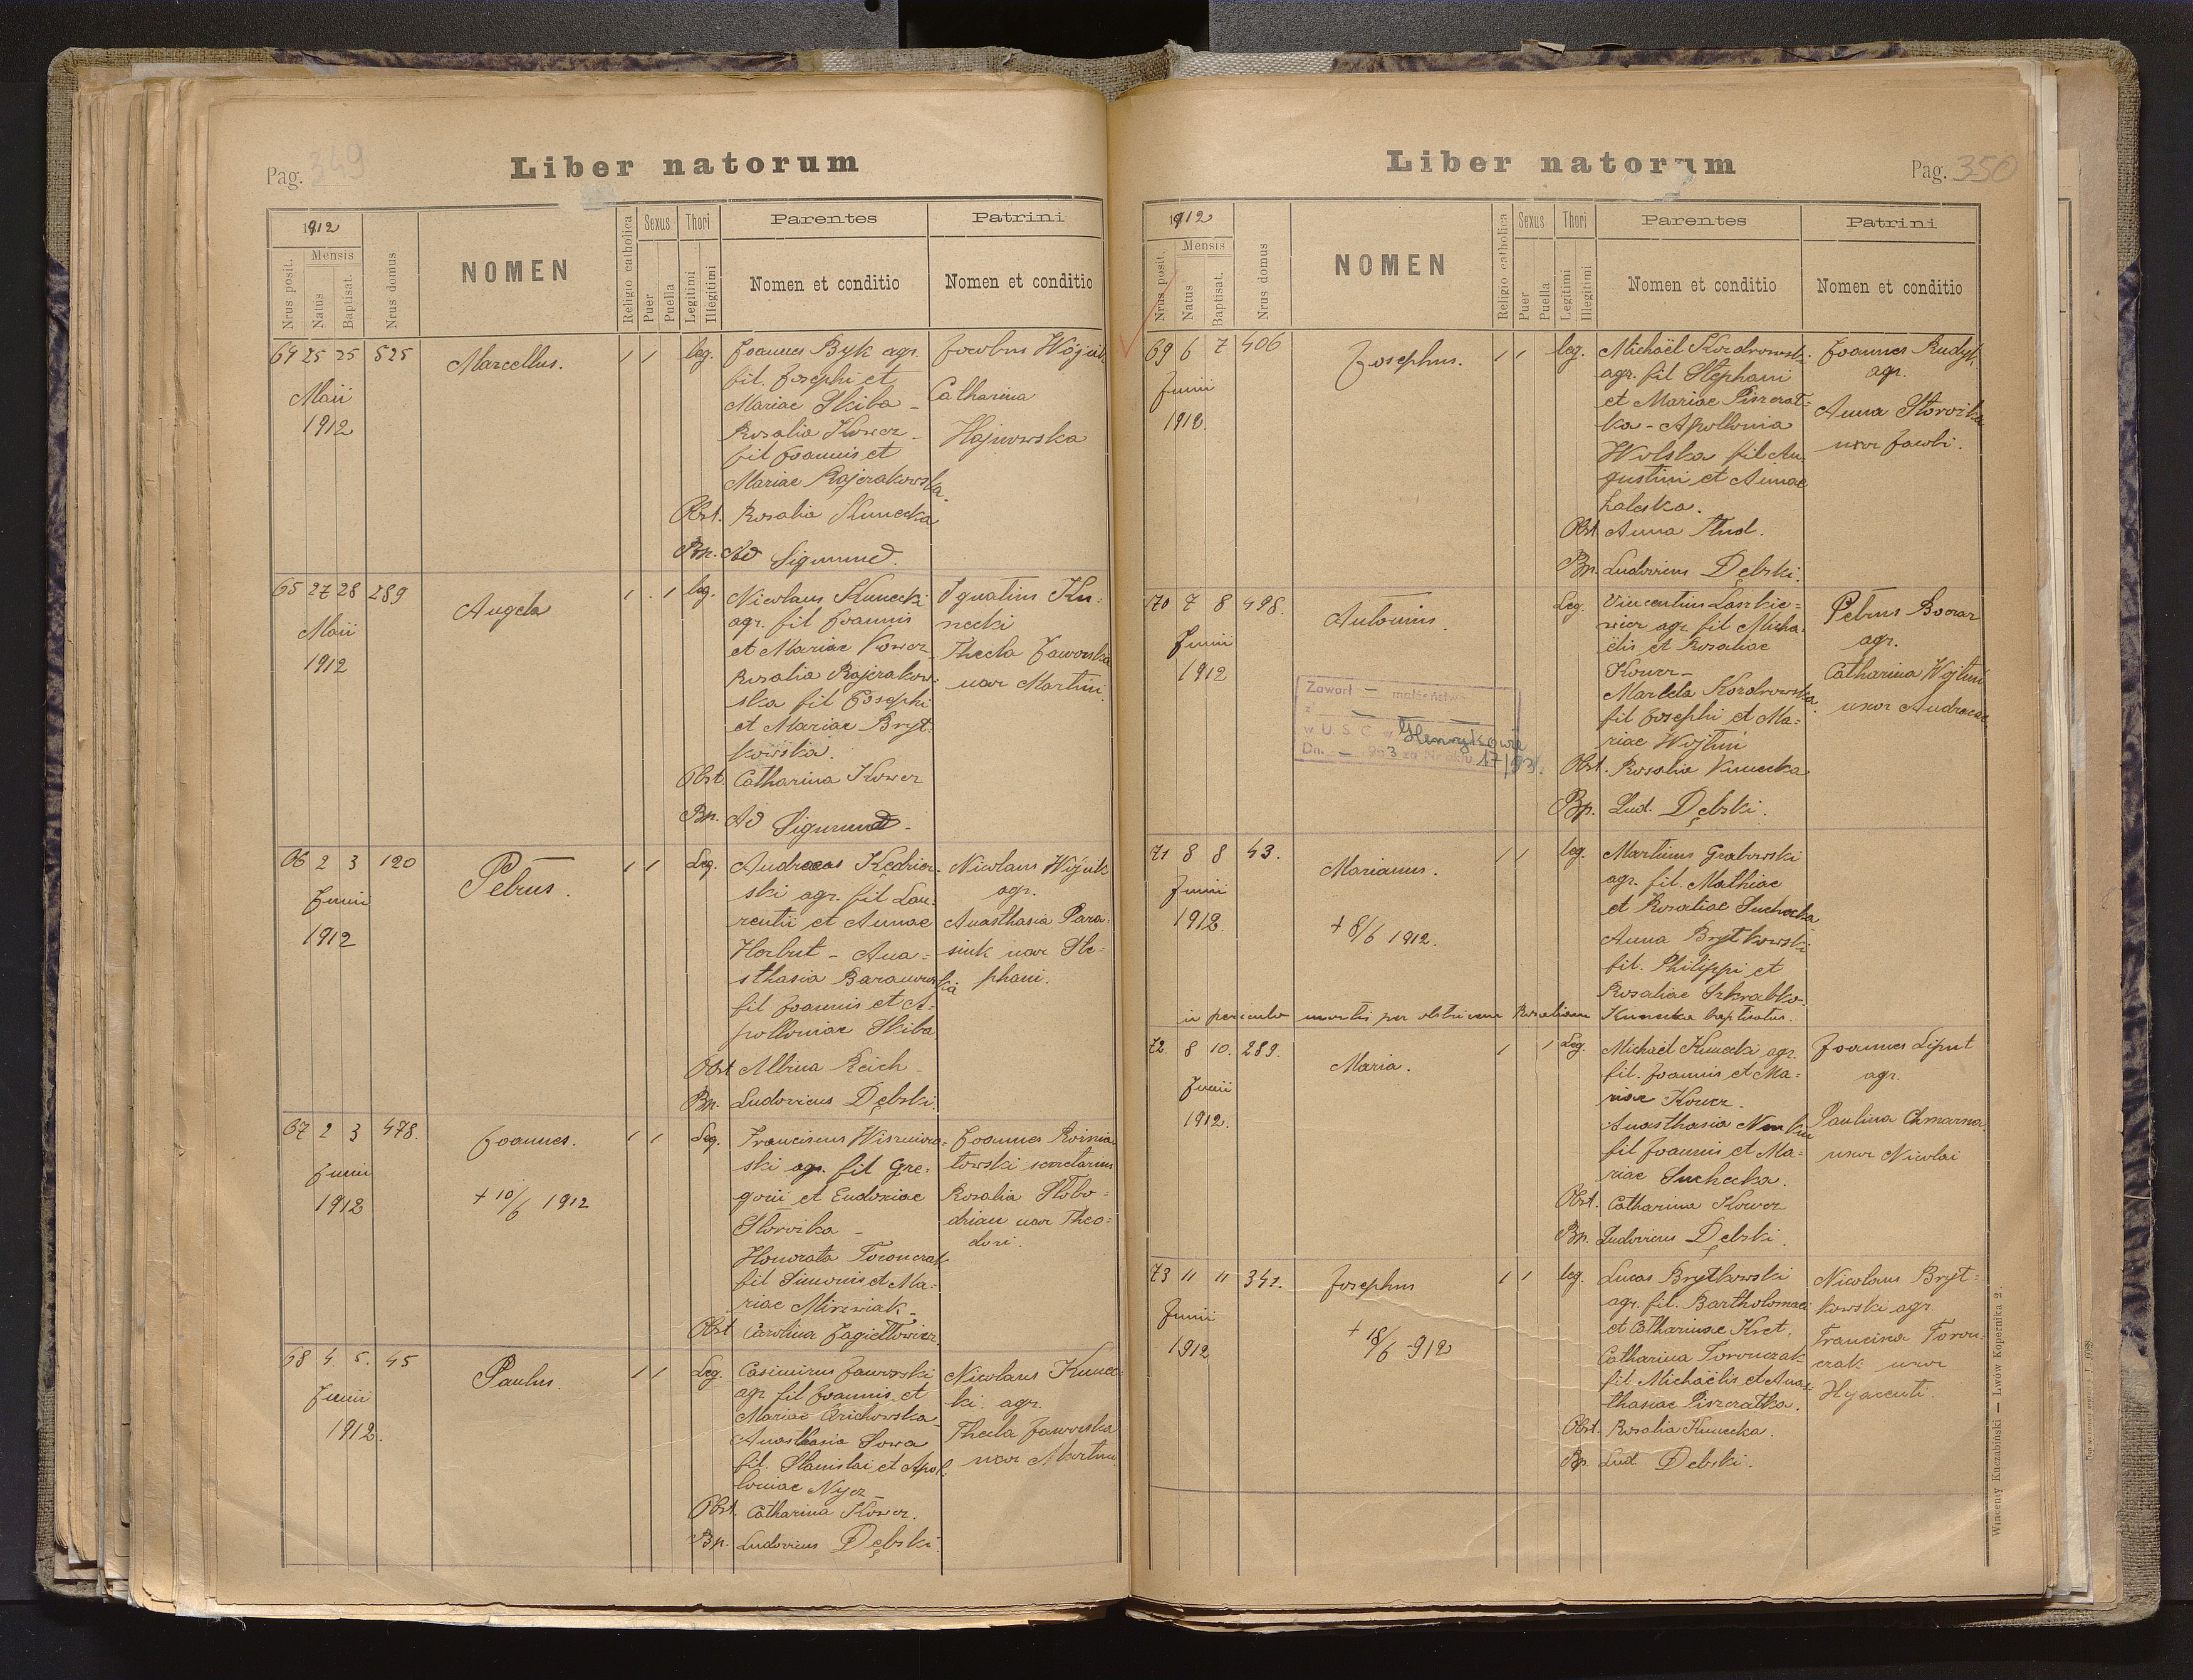 Pag. 349
Liber natorum
1912
Mensis
Nrus posit.
Natus
Baptisat.
Nrus domus
NOMEN
Religio catholica
Sexus
Puer
Puella
Thori
Legitimi
Illegitimi
Parentes
Nomen et conditio
Patrini
Nomen et conditio
64 25 25 525
Maii
1912
Marcellus.
1 1 leg.
Joannes Byk agr.
fil. Josephi et
Mariae Skiba -
Rosalia Kower -
fil Joannis et
Mariae Rajczakowska.
Obst. Rosalia Kunecka
Bp. Ad Sigmund.
Jacobus Wójcik
Catharina
Hajnowska
65 27 28 289
Maii
1912
Angela
1 . 1 leg.
Nicolaus Kunecki
agr. fil Joannis
et Mariae Kower
Rosalia Rajczakow-
ska fil Josephi
et Mariae Bryt-
kowska.
Obst. Catharina Kower
Bp. Ad Sigmund -
Ignatius Ku-
necki
Thecla Jaworska
uxor Martini
66 2 3 120
Junii
1912
Petrus.
1 1 Leg.
Andreas Kedzier-
ski agr. fil Lau-
rentii et Annae
Herbut - Ana-
sthasia Baranowska
fil Joannis et A-
polloniae Skiba
Obst Albina Reich -
Bp. Ludovicus Dębski.
Nicolaus Wójcik
agr.
Anasthasia Para-
siuk uxor Ste-
phani.
67 2 3 478.
Junii
1912
Joannes.
+ 10/6 1912
1 1 Leg.
Franciscus Wiszniow-
ski agr. fil Gre-
gorii et Eudoxiae
Storoika -
Honorata Toronczak
fil Simonis et Ma-
riae Mirzwiak -
Obst Carolina Jagiełłowicz.
Joannes
towski secretarius
Rosalia Słobo-
drian uxor Theo-
dori.
68 4. 5. 45
Junii
1912.
Paulus.
1 1 Leg.
Casimirus Jaworski
agr. fil Joannis et
Mariae Orichowska -
Anasthasia Sowa
fil. Stanislai et Apol-
loniae Nycz -
Obst. Catharina Kower.
Bp. Ludovicus Dębski.
Nicolaus Kunec-
ki agr.
Thecla Jaworska
uxor Martini
Liber natorum
Pag. 350
1912
Mensis
Nrus posit.
Natus
Baptisat.
Nrus domus
NOMEN
Religio catholica
Sexus
Puer
Puella
Thori
Legitimi
Illegitimi
Parentes
Nomen et conditio
Patrini
Nomen et conditio
69 6 7 406
Junii
1912.
Josephus.
1 1 leg.
Michaël Kozdrowski
agr. fil Stephani
et Mariae Piszczat-
ka - Apollonia
Wolska fil Au-
gustini et Annae
Zaleska.
Obst Anna Stud.
Bp. Ludovicus Dębski.
Joannes Rudyk
agr.
Anna Storoika
uxor Jacobi.
70 7 8 498.
Junii
1912
Antonius.
Zawarł — małżeństwo
z —
w U. S. C. w Henrykowie
Dn. — 1953 za Nr aktu 17/53.
Leg.
Vincentius Laszkie-
wicz agr. fil Micha-
elis et Rosaliae
Kower -
Marcela Kozdrowska
fil Josephi et Ma-
riae Wójtuń
Obst. Rosalia Kunecka
Bp. Lud. Dębski.
Petrus Boczar
agr.
Catharina Wójtuń
uxor Andreae
71 8 8 43.
Junii
1912.
Marianus.
+ 8/6 1912.
1 1 leg.
Martinus Grabowski
agr. fil. Mathiae
et Rosaliae Suchecka
Anna Brytkowski
fil. Philippi et
Rosaliae Szkrabko.
in periculo mortis per obstricem Rosaliam Kunecka baptisatus.
72. 8 10. 289.
Junii
1912.
Maria.
1 1 Leg.
Michaël Kunecki agr.
fil. Joannis et Ma-
riae Kower -
Anasthasia
fil Joannis et Ma-
riae Suchecka.
Obst. Catharina Kower
Bp. Ludovicus Dębski.
Joannes Liput
agr.
Paulina Chmarna.
uxor Nicolai
73 11 11 341.
Junii
1912
Josephus
+ 18/6 912
1 1 leg.
Lucas Brytkowski
agr. fil. Bartholomaei
et Catharinae Kret.
Catharina Toronczak
fil. Michaelis et Anas-
thasiae Piszczatka.
Obst. Rosalia Kunecka.
Bp. Lud Dębski.
Nicolaus Bryt-
kowski agr.
Francisca Toron-
czak uxor
Hyacenti.
Wincenty Kuczabiński — Lwów Kopernika 2